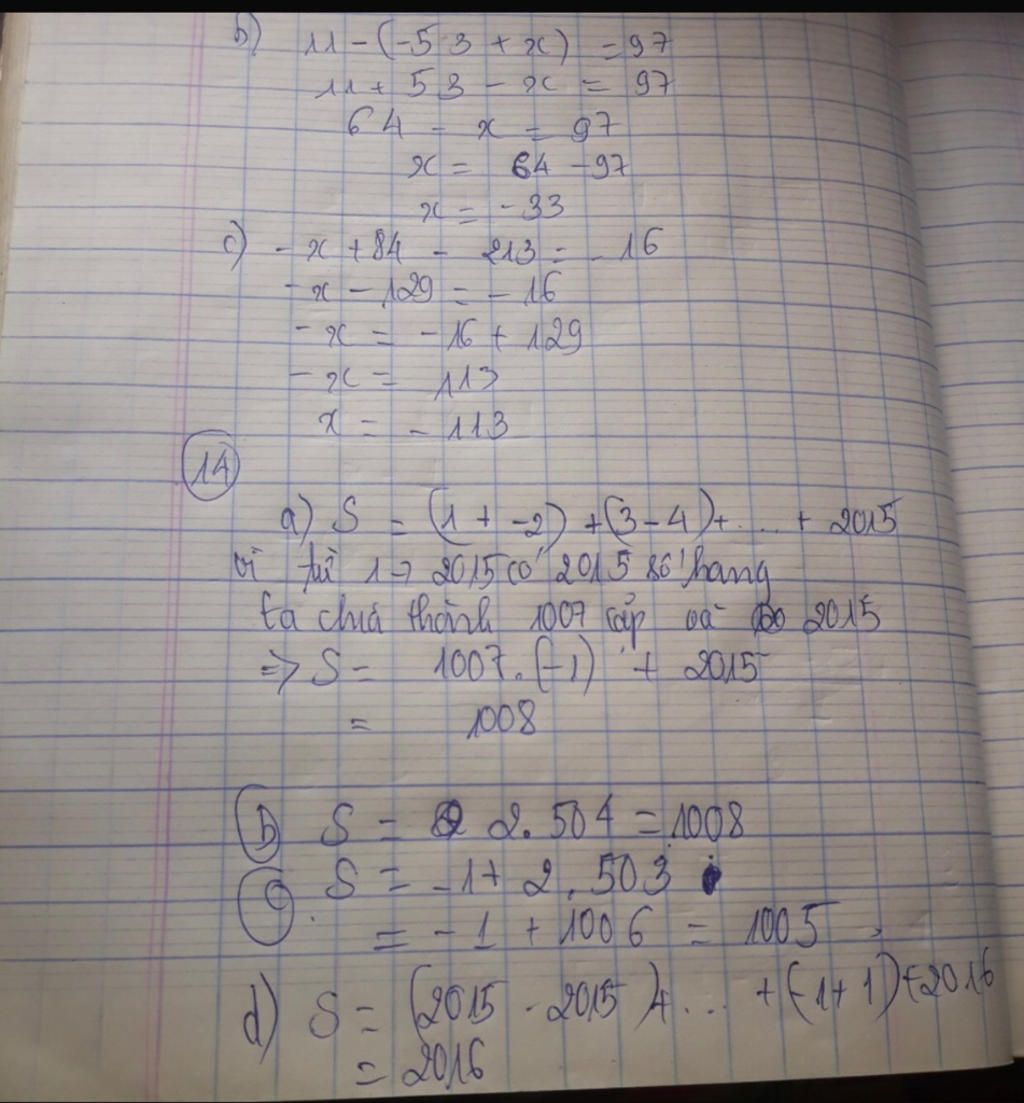 b) 11 - (-53 + x) = 97
11 + 53 - x = 97
64 - x = 97
x = 64 - 97
x = -33
c) - x + 84 - 213 = -16
- x - 129 = - 16
- x = - 16 + 129
- x = 113
x = - 113
14
a) S = (1 + -2) + (3 - 4) + .... + 2015
vì từ 1 → 2015 có 2015 số hạng
ta chia thành 1007 cặp và 2015
=> S = 1007.(-1) + 2015
= 1008
b) S = 2.504 = 1008
c) S = -1 + 2.503
= - 1 + 1006 = 1005
d) S = (2015 - 2015) + ... + (-1 + 1) + 2016
= 2016